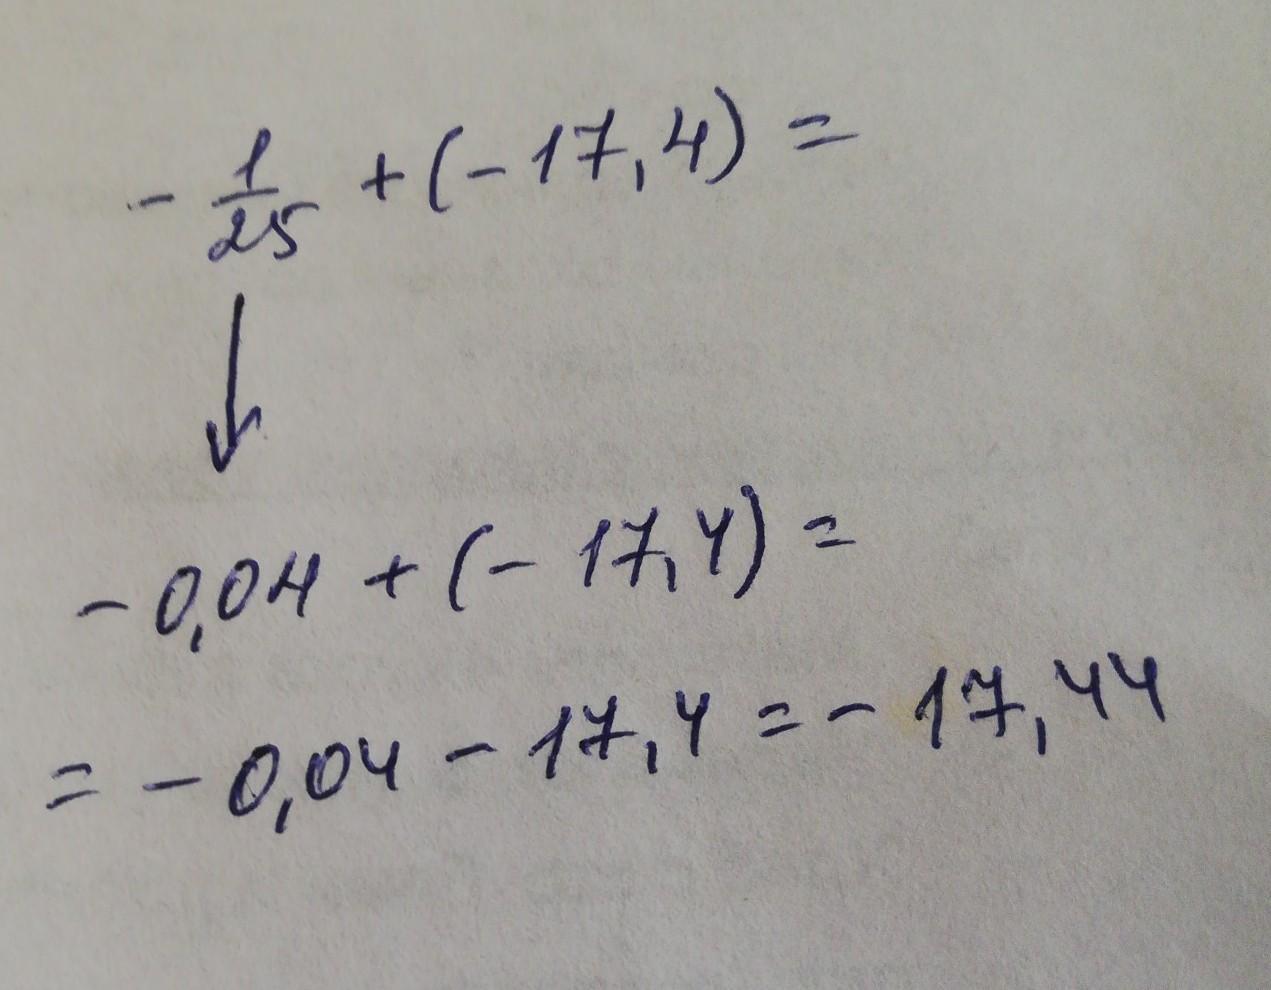 - 1/25 + (- 17,4) =
↓
- 0,04 + (- 17,4) =
= - 0,04 - 17,4 = - 17,44